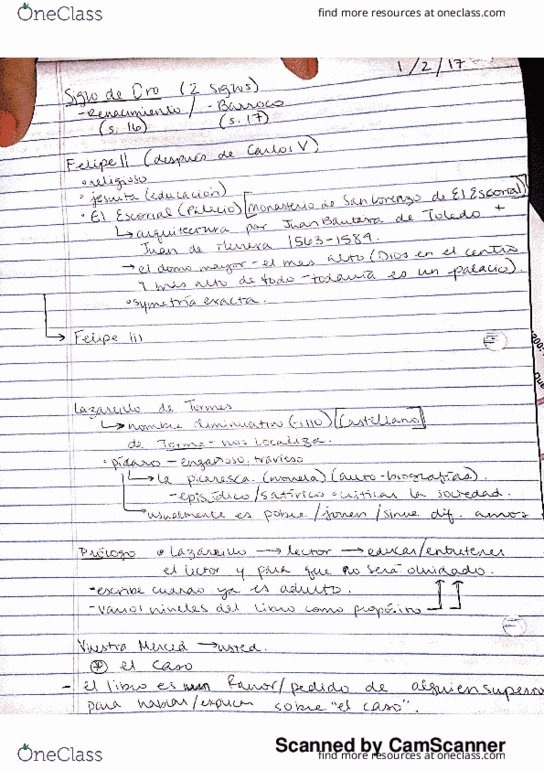 OneClass
find more resources at oneclass.com
1/2/17
Siglo de Oro (2 siglos)
-Renacimiento / -Barroco
(s. 16) (s. 17)
Felipe II (después de Carlos V)
• religioso
• jesuita (educación)
• El Escorial (Palacio) [Monasterio de San Lorenzo de El Escorial]
↳ arquitectura por Juan Bautista de Toledo +
Juan de Herrera 1563-1584.
→ el domo mayor - el mas alto (Dios en el centro
y más alto de todo - todavía es un palacio).
• symetría exacta.
Felipe III
Lazarillo de Tormes
↳ nombre diminutivo (-illo) [Castellano]
de Tormes - nos localiza.
• pícaro - engañoso, travieso
↳ la picaresca (novela) (auto-biografías).
- episódico / satírico criticar la sociedad.
usualmente es pobre / joven / sirve dif. amos
Prólogo • Lazarillo → lector → educar/entretener
el lector y para que no será olvidado.
- escribe cuando ya es adulto.
- varios niveles del libro como propósito
Vuestra Merced → usted.
el caso
- el libro es un favor/pedido de alguien superior
para hablar/explicar sobre "el caso".
OneClass
Scanned by CamScanner
find more resources at oneclass.com